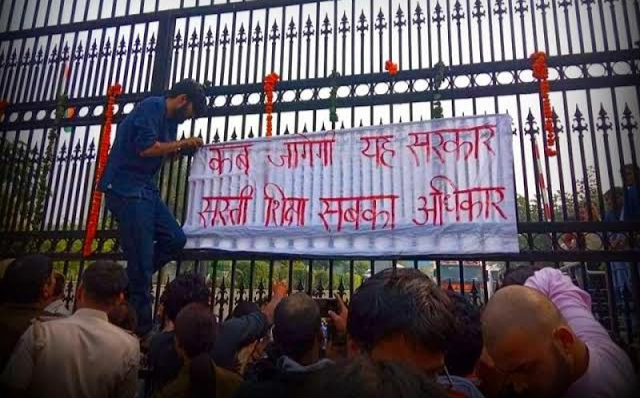 कब जागेगी यह सरकार
सस्ती शिक्षा सबका अधिकार